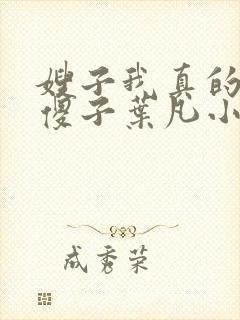 嫂子我真的
傻子叶凡小
成秀荣